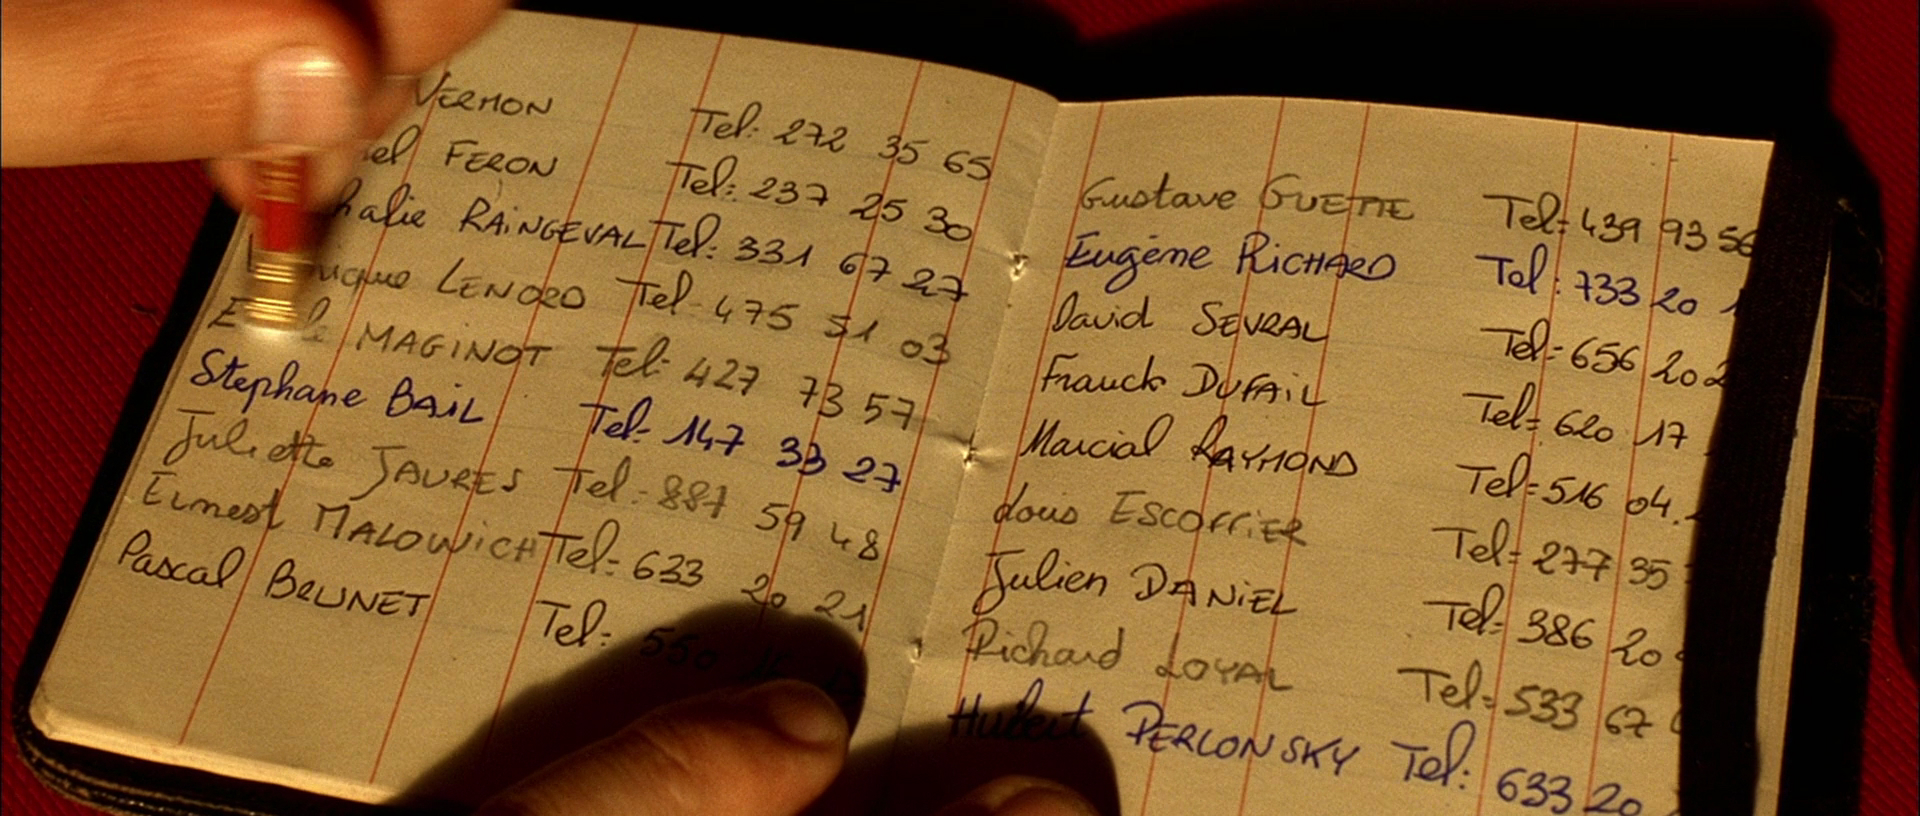 VERMON Tel: 272 35 65
FERON Tel: 237 25 30
RAiNGEVAL Tel: 331 67 27
LENORD Tel- 475 51 03
MAGINOT Tel- 427 73 57
Stephane BAiL Tel- 147 33 27
Juliette JAURES Tel- 887 59 48
Ernest MALOWiCH Tel- 633 20 21
Pascal BRUNET Tel: 550
Gustave GUETTE Tel= 439 93 56
Eugène RiCHARD Tel: 733 20
David SEVRAL Tel= 656 20
Franck DUFAiL Tel= 620 17
Marcial RAYMOND Tel= 516 04
Louis ESCOFFiER Tel= 277 35
Julien DANiEL Tel= 386 20
Richard LOYAL Tel= 533 67
Hubert PERLONSKY Tel: 633 20